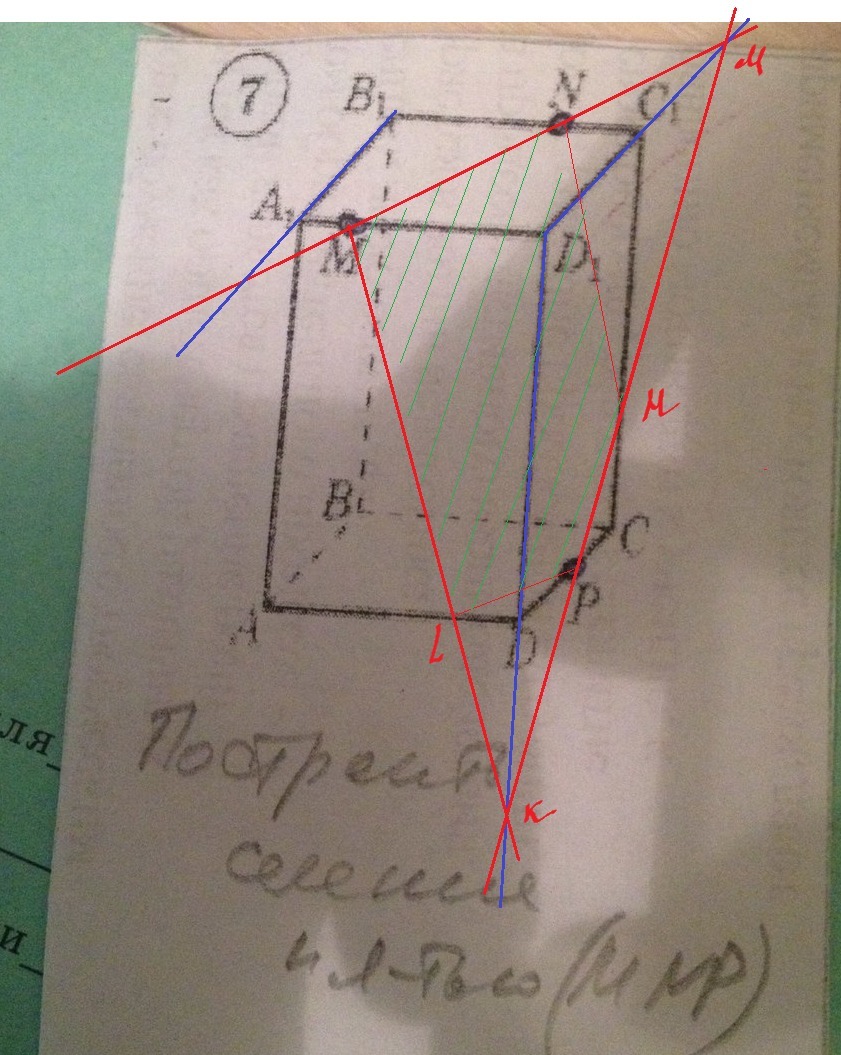 7
B₁ N C₁ М
A₁
M D₁
М
B C
P
A L D
K
ля_
Построить
сечение
и_
пл-тью (MNP)